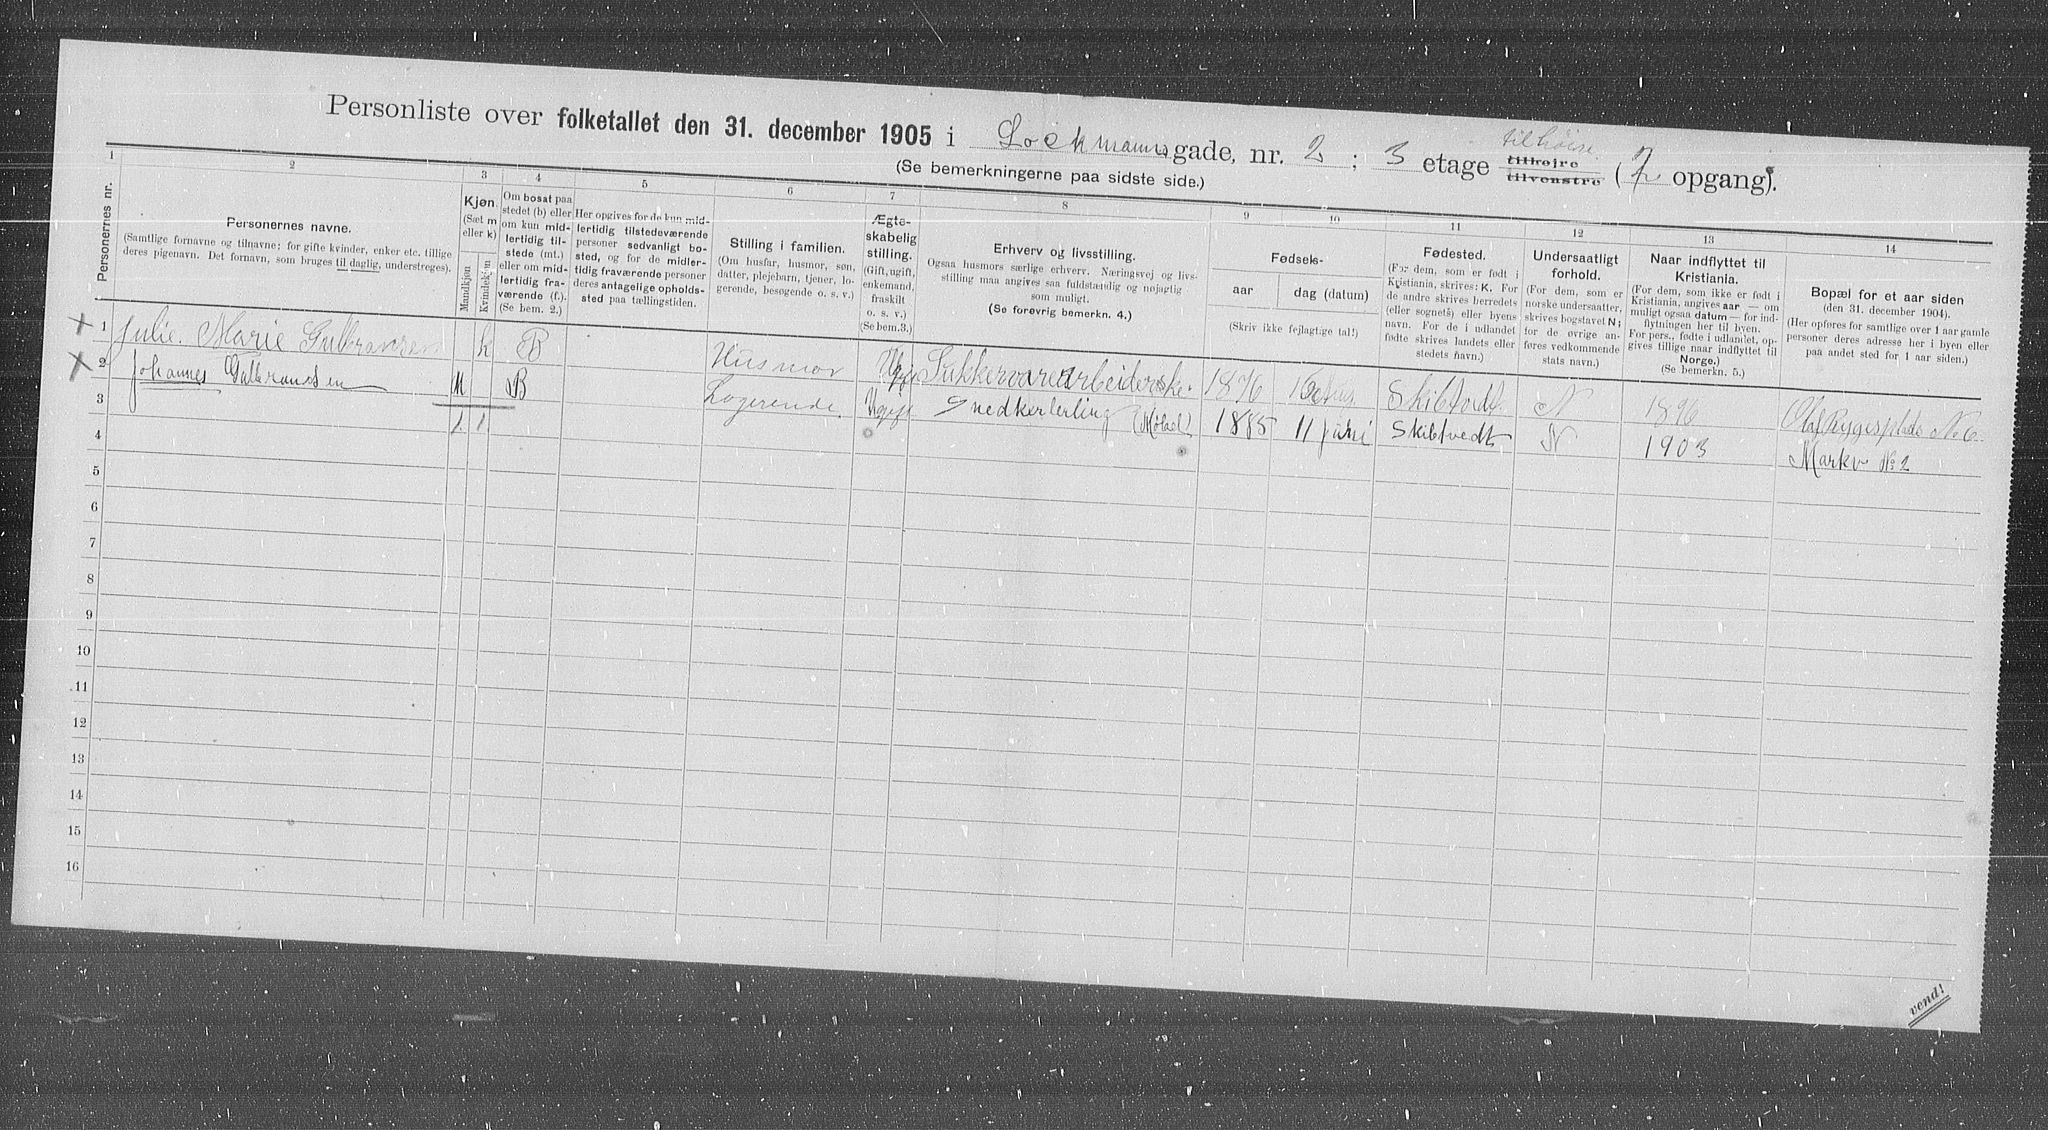 Personliste over folketallet den 31. december 1905 i Lockmanns gade, nr. 2 ; 3 etage tilhøire tilhøjre tilvenstre ( 2 opgang).
(Se bemerkningerne paa sidste side.)
1 2 3 4 5 6 7 8 9 10 11 12 13 14
Personernes nr.
Personernes navne.
(Samtlige fornavne og tilnavne; for gifte kvinder, enker etc. tillige
deres pigenavn. Det fornavn, som bruges til daglig, understreges).
Kjøn.
(Sæt m
eller k)
Mandkjøn
Kvindekjøn
Om bosat paa
stedet (b) eller
om kun mid-
lertidig til-
stede (mt.)
eller om mid-
lertidig fra-
værende (f.).
(Se bem. 2.)
Her opgives for de kun mid-
lertidig tilstedeværende
personer sedvanlig bo-
sted, og for de midler-
tidig fraværende personer
deres antagelige opholds-
sted paa tællingstiden.
Stilling i familien.
(Om husfar, husmor, søn,
datter, plejebarn, tjener, lo-
gerende, besøgende o. s. v.)
Ægte-
skabelig
stilling.
(Gift, ugift,
enkemand,
fraskilt
o. s. v.)
(Se bem.3.)
Erhverv og livsstilling.
Ogsaa husmors særlige erhverv. Næringsvej og livs-
stilling maa angives saa fuldstændig og nøjagtig
som muligt.
(Se forøvrig bemerkn. 4.)
Fødsels-
aar
dag (datum)
(Skriv ikke fejlagtige tal!)
Fødested.
(For dem, som er født i
Kristiania, skrives: K. For
de andre skrives herredets
(eller sognets) eller byens
navn. For de i udlandet
fødte skrives landets eller
stedets navn.)
Undersaatligt
forhold.
(For dem, som er
norske undersaatter,
skrives bogstavet N;
for de øvrige an-
føres vedkommende
stats navn.)
Naar indflyttet til
Kristiania.
(For dem, som ikke er født i
Kristiania, angives aar — om
muligt ogsaa datum — for ind-
flytningen her til byen.
For pers., fødte i udlandet, op-
gives tillige naar indflyttet til
Norge.)
(Se bemerkn. 5.)
Bopæl for et aar siden
(den 31. december 1904).
(Her opføres for samtlige over 1 aar gamle
personer deres adresse her i byen eller
paa andet sted for 1 aar siden.)
1 Julie Marie Gulbransen k B Husmor Ugift Sukkervarearbeiderske 1876 N 1896 Olaf Ryesplads No 6
2 Johannes Gulbransen M B Logerende Ugift Snedkerlerling (Møbel) 1885 11 juni Skibtvedt N 1903 Markv No 2
3 1 1
4
5
6
7
8
9
10
11
12
13
14
15
16
vend!